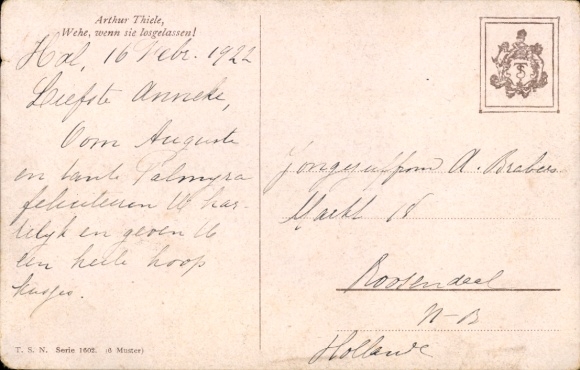 Arthur Thiele,
Wehe, wenn sie losgelassen!
Hal, 16 Febr. 1922
Liefste Anneke,
Oom Auguste
en tante Palmyra
feliciteren U har-
telijk en geven U
een heele hoop
kusjes.
T. S. N. Serie 1602. (6 Muster)
TS
Jongejuffrow A. Brabers
Markt 18
Roosendael
N-B
Hollande